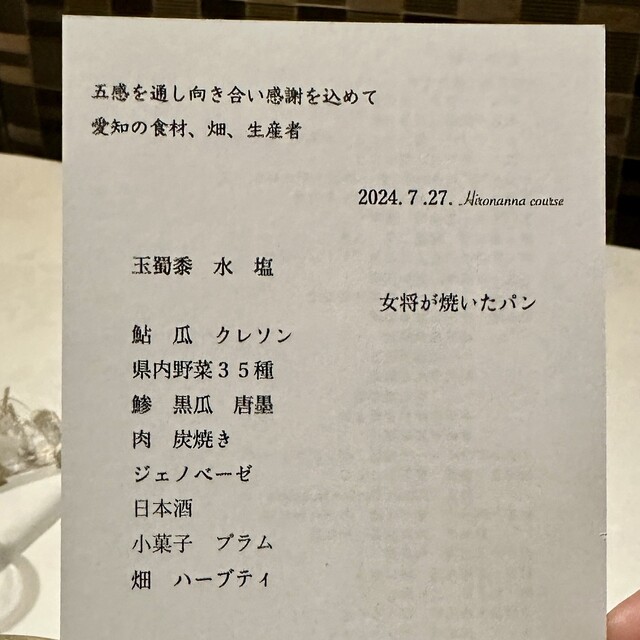 五感を通し向き合い感謝を込めて
愛知の食材、畑、生産者
2024.7.27. Hironanna course
玉蜀黍　水　塩
女将が焼いたパン
鮎　瓜　クレソン
県内野菜３５種
鯵　黒瓜　唐墨
肉　炭焼き
ジェノベーゼ
日本酒
小菓子　プラム
畑　ハーブティ